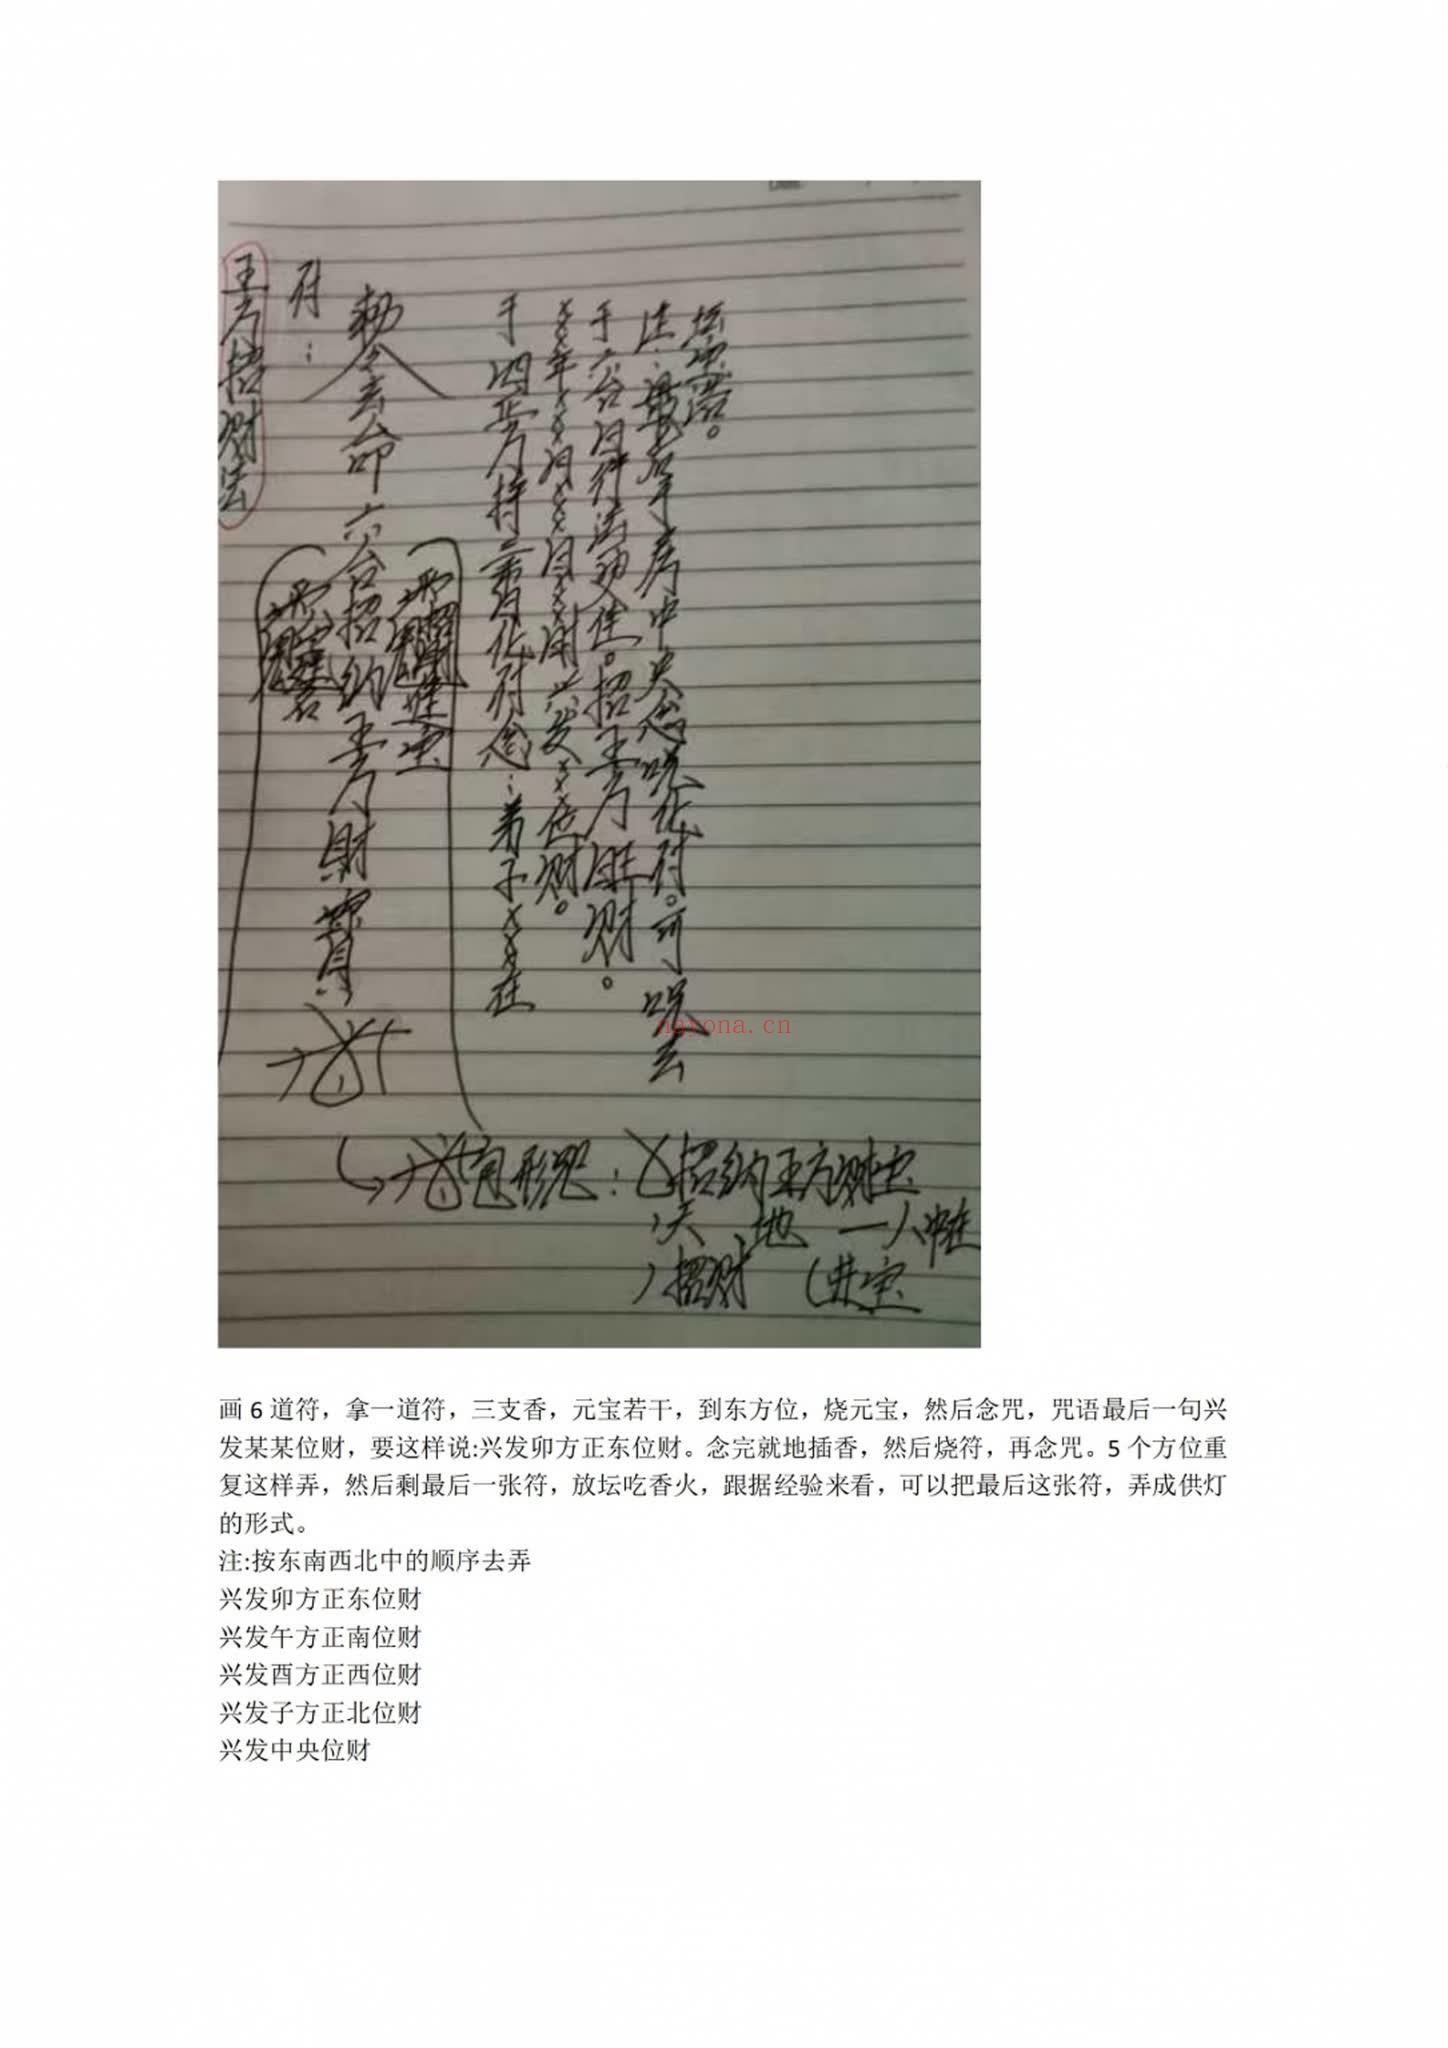 五方招财法
符：
敕令玄命六合招纳五方财宝
于四正方持三香化符念：弟子×××在
×××年××月××日××时兴发××位财。
于六合日行法更佳。招五方旺财。
注：最后于序中央念咒化符。可咒去
招纳五方财宝
天 地 一人中
招财 进宝
nayona.cn
画 6 道符，拿一道符，三支香，元宝若干，到东方位，烧元宝，然后念咒，咒语最后一句兴
发某某位财，要这样说:兴发卯方正东位财。念完就地插香，然后烧符，再念咒。5 个方位重
复这样弄，然后剩最后一张符，放坛吃香火，跟据经验来看，可以把最后这张符，弄成供灯
的形式。
注:按东南西北中的顺序去弄
兴发卯方正东位财
兴发午方正南位财
兴发酉方正西位财
兴发子方正北位财
兴发中央位财